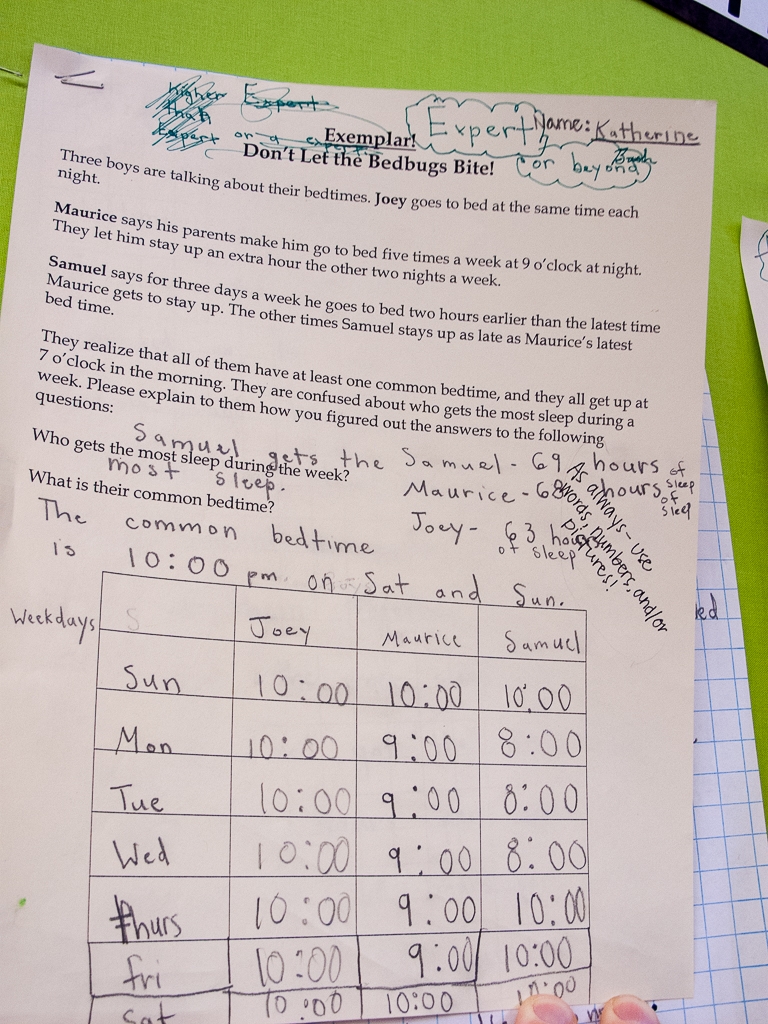 higher Expert
than
Expert or a expert
Expert,
or beyond
Name: Katherine
Exemplar!
Don't Let the Bedbugs Bite!
Three boys are talking about their bedtimes. Joey goes to bed at the same time each
night.
Maurice says his parents make him go to bed five times a week at 9 o'clock at night.
They let him stay up an extra hour the other two nights a week.
Samuel says for three days a week he goes to bed two hours earlier than the latest time
Maurice gets to stay up. The other times Samuel stays up as late as Maurice's latest
bed time.
They realize that all of them have at least one common bedtime, and they all get up at
7 o'clock in the morning. They are confused about who gets the most sleep during a
week. Please explain to them how you figured out the answers to the following
questions:
Who gets the most sleep during the week?
Samuel gets the
most sleep.
What is their common bedtime?
The common bedtime
is 10:00 pm on Sat and Sun.
Samuel - 69 hours of sleep
Maurice - 68 hours of sleep
Joey - 63 hours
of sleep
As always - use
words, numbers, and/or
pictures!
Weekdays Joey Maurice Samuel
Sun 10:00 10:00 10:00
Mon 10:00 9:00 8:00
Tue 10:00 9:00 8:00
Wed 10:00 9:00 8:00
Thurs 10:00 9:00 10:00
fri 10:00 9:00 10:00
Sat 10:00 10:00 10:00